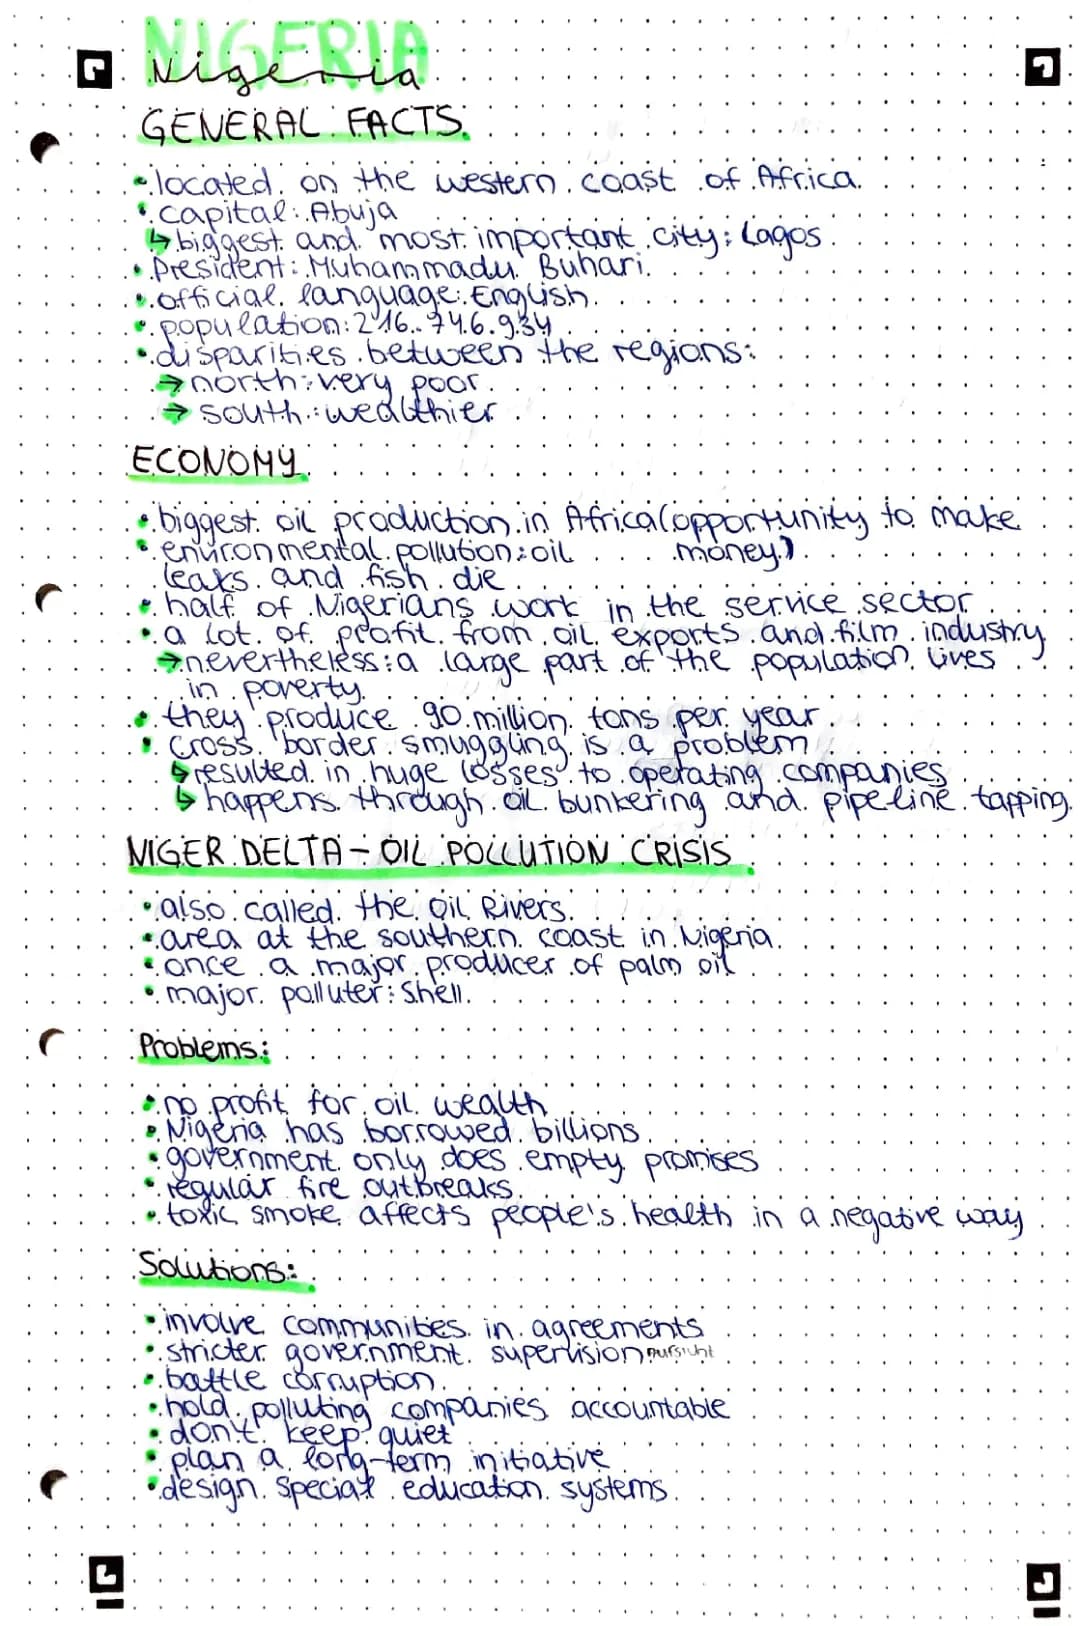 NIGERIA
Nigeria
GENERAL FACTS
• located on the western coast of Africa
• capital: Abuja
↳ biggest and most important city: Lagos
• President: Muhammadu Buhari
• official language: English
• population: 216.746.934
• disparities between the regions:
→ north: very poor
→ south: wealthier
ECONOMY
• biggest oil production in Africa (opportunity to make
• environmental pollution: oil money)
leaks and fish die
• half of Nigerians work in the service sector
• a lot of profit from oil exports and film industry
→ nevertheless: a large part of the population lives
in poverty
• they produce 90 million tons per year
• cross border smuggling is a problem
↳ resulted in huge losses to operating companies
↳ happens through oil bunkering and pipeline tapping
NIGER DELTA - OIL POLLUTION CRISIS
• also called the Oil Rivers
• area at the southern coast in Nigeria
• once a major producer of palm oil
• major polluter: Shell
Problems:
• no profit for oil wealth
• Nigeria has borrowed billions
• government only does empty promises
• regular fire outbreaks
• toxic smoke affects people's health in a negative way
Solutions:
• involve communities in agreements
• stricter government supervision
• battle corruption
• hold polluting companies accountable
• don't keep quiet
• plan a long-term initiative
• design special education systems